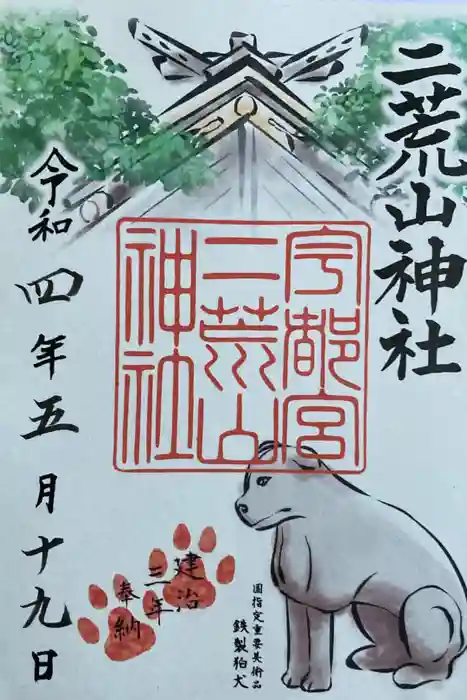 二荒山神社
宇都宮
二荒山
神社
令和四年五月十九日
建治
三年
奉納
国指定重要美術品
鉄製狛犬